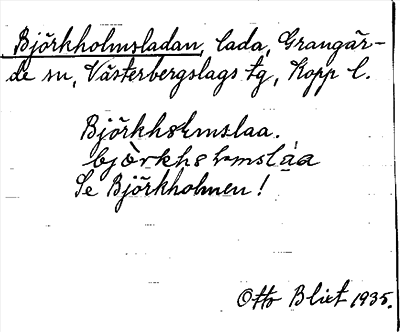 Björkholmsladan, lada, Grangär-
de sn, Västerbergslags tg, Kopp l.
Björkhɷlmslaa.
bjòrkhɷlmslàa
Se Björkholmen!
Otto Blixt 1935.